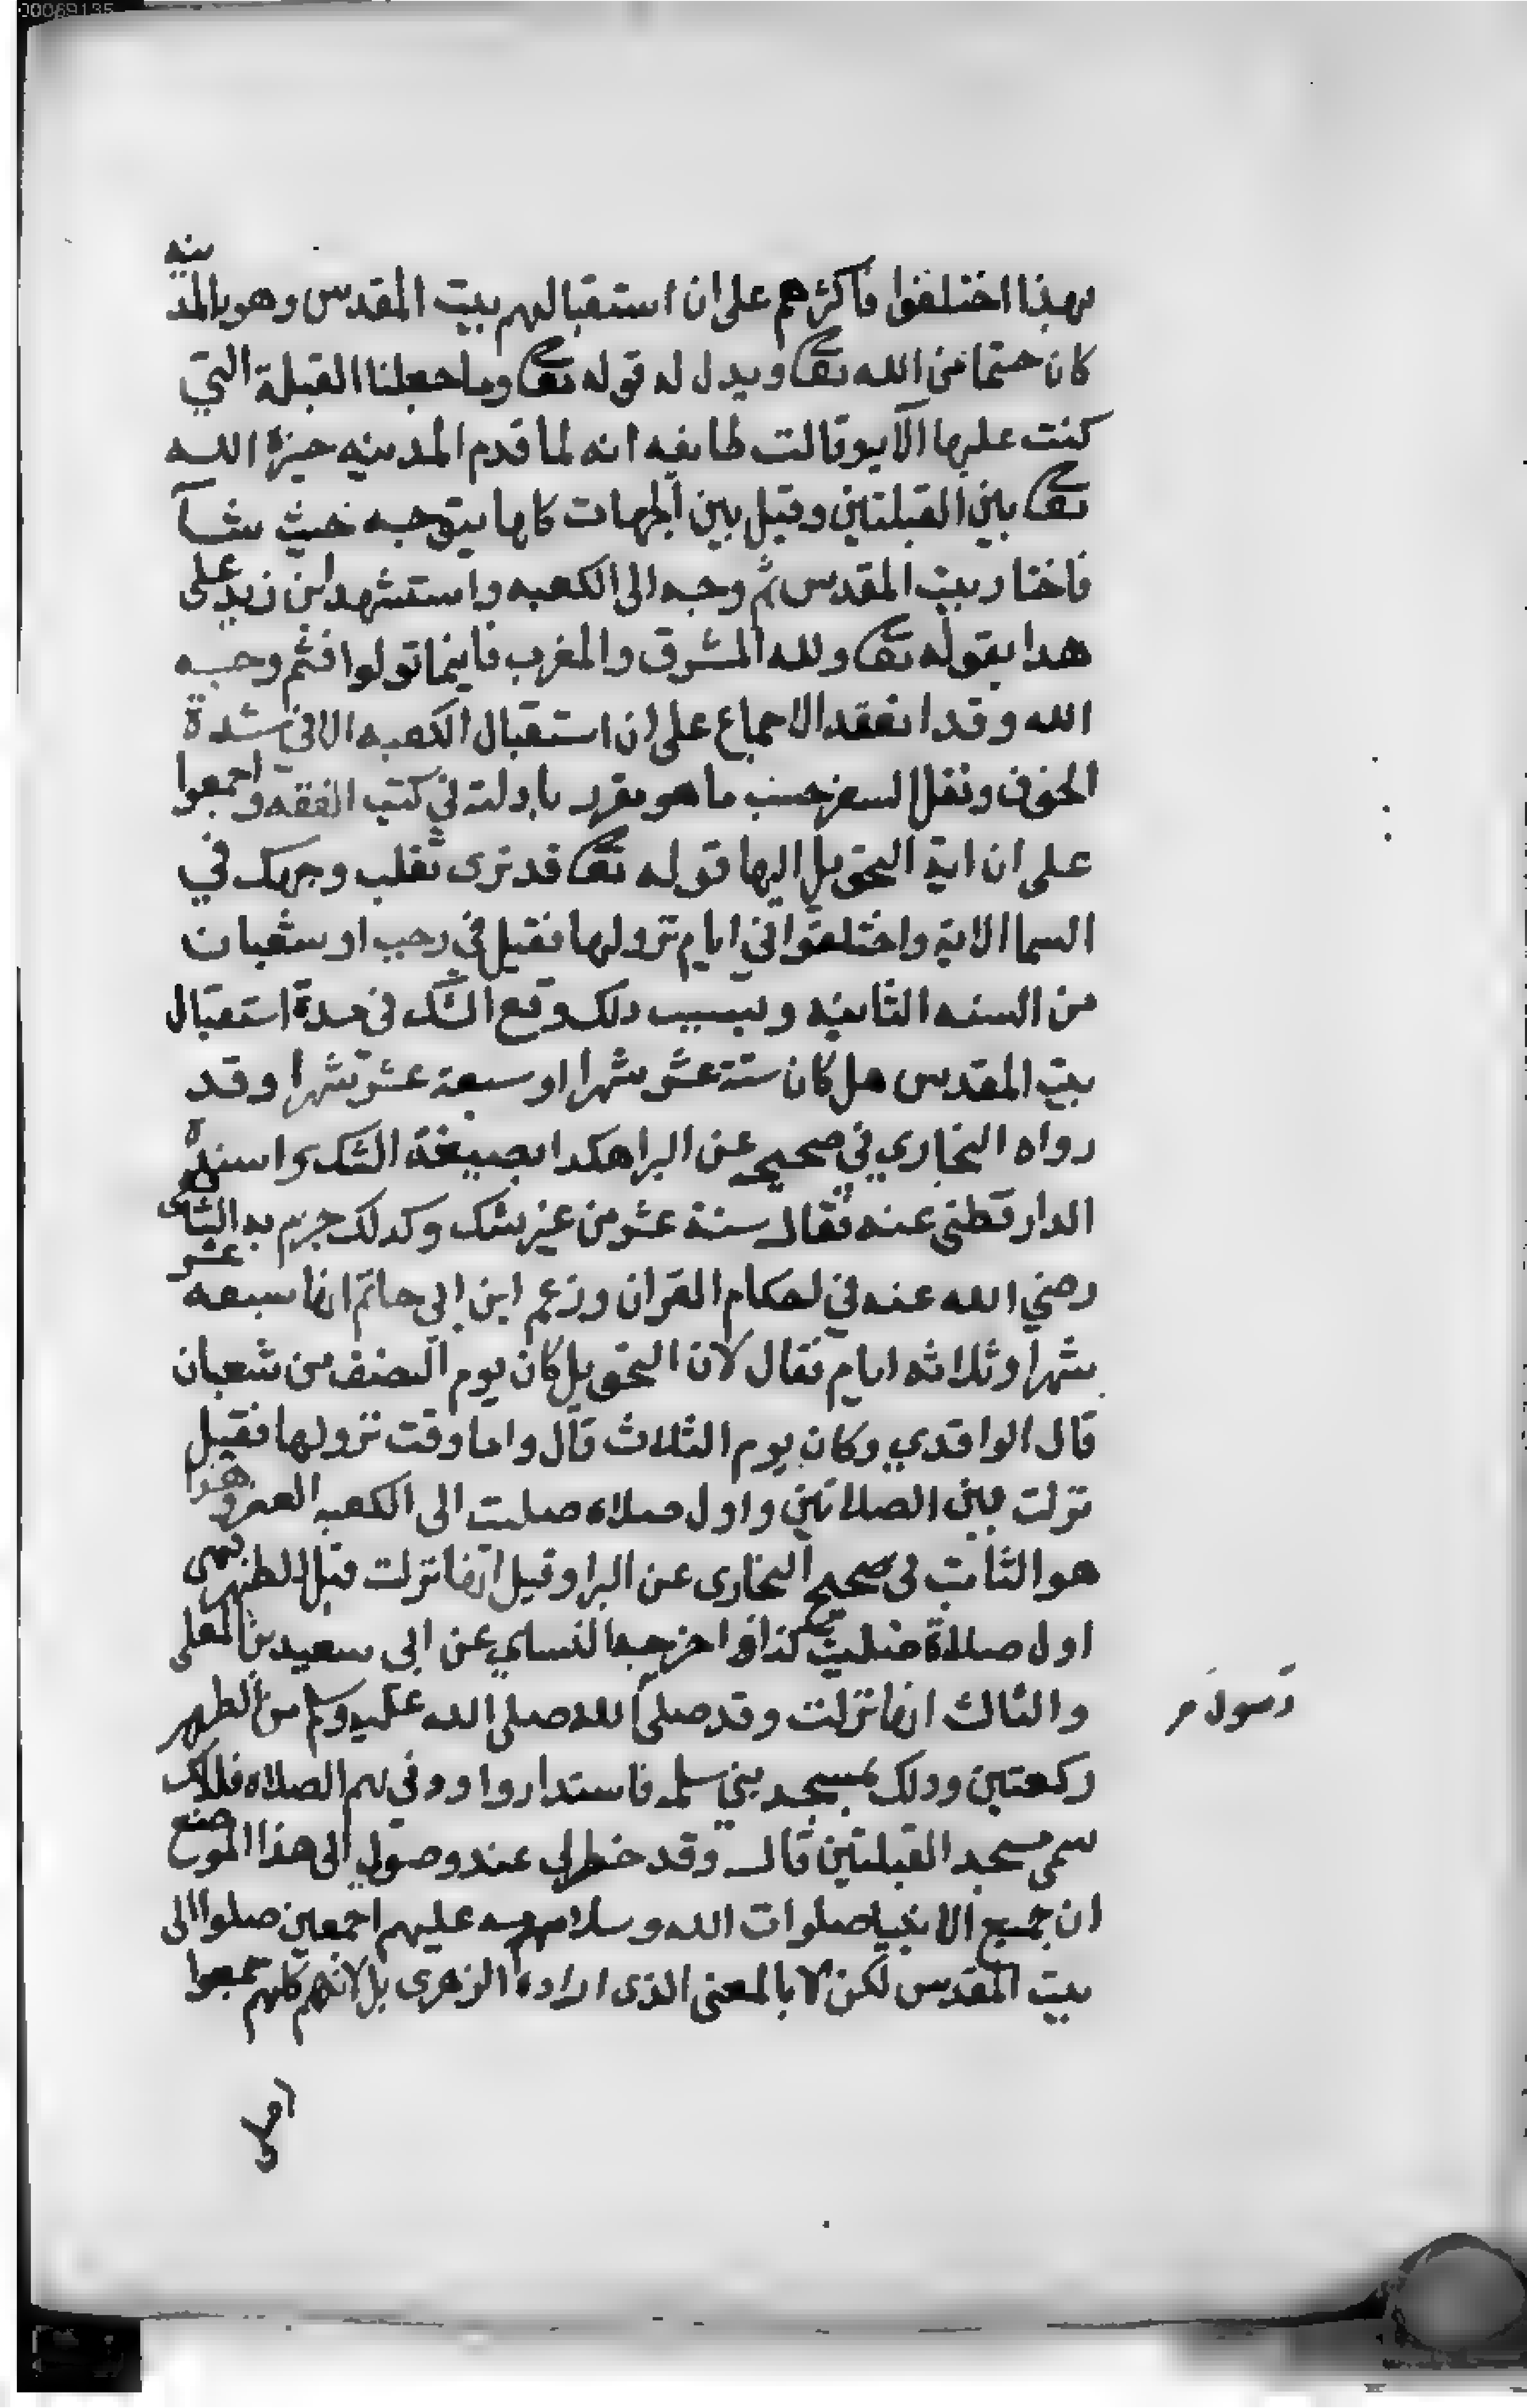 بهذا اختلفوا فاكثرهم على ان استقبالهم بيت المقدس وهو بالمدينه
كان حتما من الله تعا ويدل له قوله تعا وما جعلنا القبلة التي
كنت عليها الآيه وقالت طايفه انه لما قدم المدينه خيره الله
تعا بين القبلتين وقيل بين الجهات كلها يتوجه حيث شآ
فاختار بيت المقدس ثم وجه الى الكعبه واستشهد ابن زيد على
هدا بقوله تعا ولله المشرق والمغرب فاينما تولوا فثم وجه
الله وقد انعقد الاجماع على ان استقبال الكعبه الا في شدة
الخوف ونفل السفر حسب ما هو مقرر بادلته في كتب الفقه واجمعوا
على ان اية التحويل اليها قوله تعا قد نرى تقلب وجهك في
السما الاية واختلفوا في ايام نزولها فقيل في رجب او شعبان
من السنه الثانيه وبسبب دلك وقع الشك في مدة استقبال
بيت المقدس هل كان ستة عشر شهرا او سبعة عشر شهرا وقد
رواه البخاري في صحيحه عن البرا هكدا بصيغة الشك واسنده
الدارقطني عنه فقال ستة عشر من غير شك وكدلك جزم به الشافعى
رضي الله عنه في احكام القران وزعم ابن ابي حاتم انها سبعه عشر
شهرا وثلاثه ايام فقال لان التحويل كان يوم النصف من شعبان
قال الواقدي وكان يوم الثلاث قال واما وقت نزولها فقيل
نزلت بين الصلاتين واول صلاه صليت الى الكعبه العصر وهذا
هو الثابت في صحيح البخارى عن البرا وقيل انها نزلت قبل الظهر فهى
اول صلاة صليت كذا اخرجه النساي عن ابى سعيد بن المعلى
والثالث انها نزلت وقد صلى الله صلى الله عليه وسلم من الظهر
رسول
ركعتين ودلك بمسجد بني سلمه فاستداروا وهم في الصلاه فلذلك
سمي مسجد القبلتين قال وقد خطر لي عند وصولي الى هذا الموضع
ان جميع الانبيا صلوات الله وسلامه عليهم اجمعين صلوا الى
بيت المقدس لكن لا بالمعنى الذى اراده الزهرى بل لانهم كلهم جمعوا